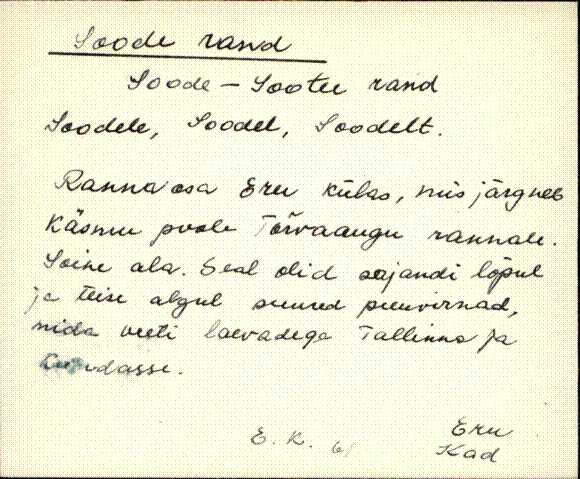 Soode rand
Soode – Sootee rand
Soodele, Soodel, Soodelt.
Ranna osa Eru külas, mis järgneb
Käsmu poole Tõrvaaugu rannale.
Soine ala. Seal olid sajandi lõpul
ja teise algul suured puuvirnad,
mida veeti laevadega Tallinna ja
Kundasse.
E. K. 61
Eru
Kad